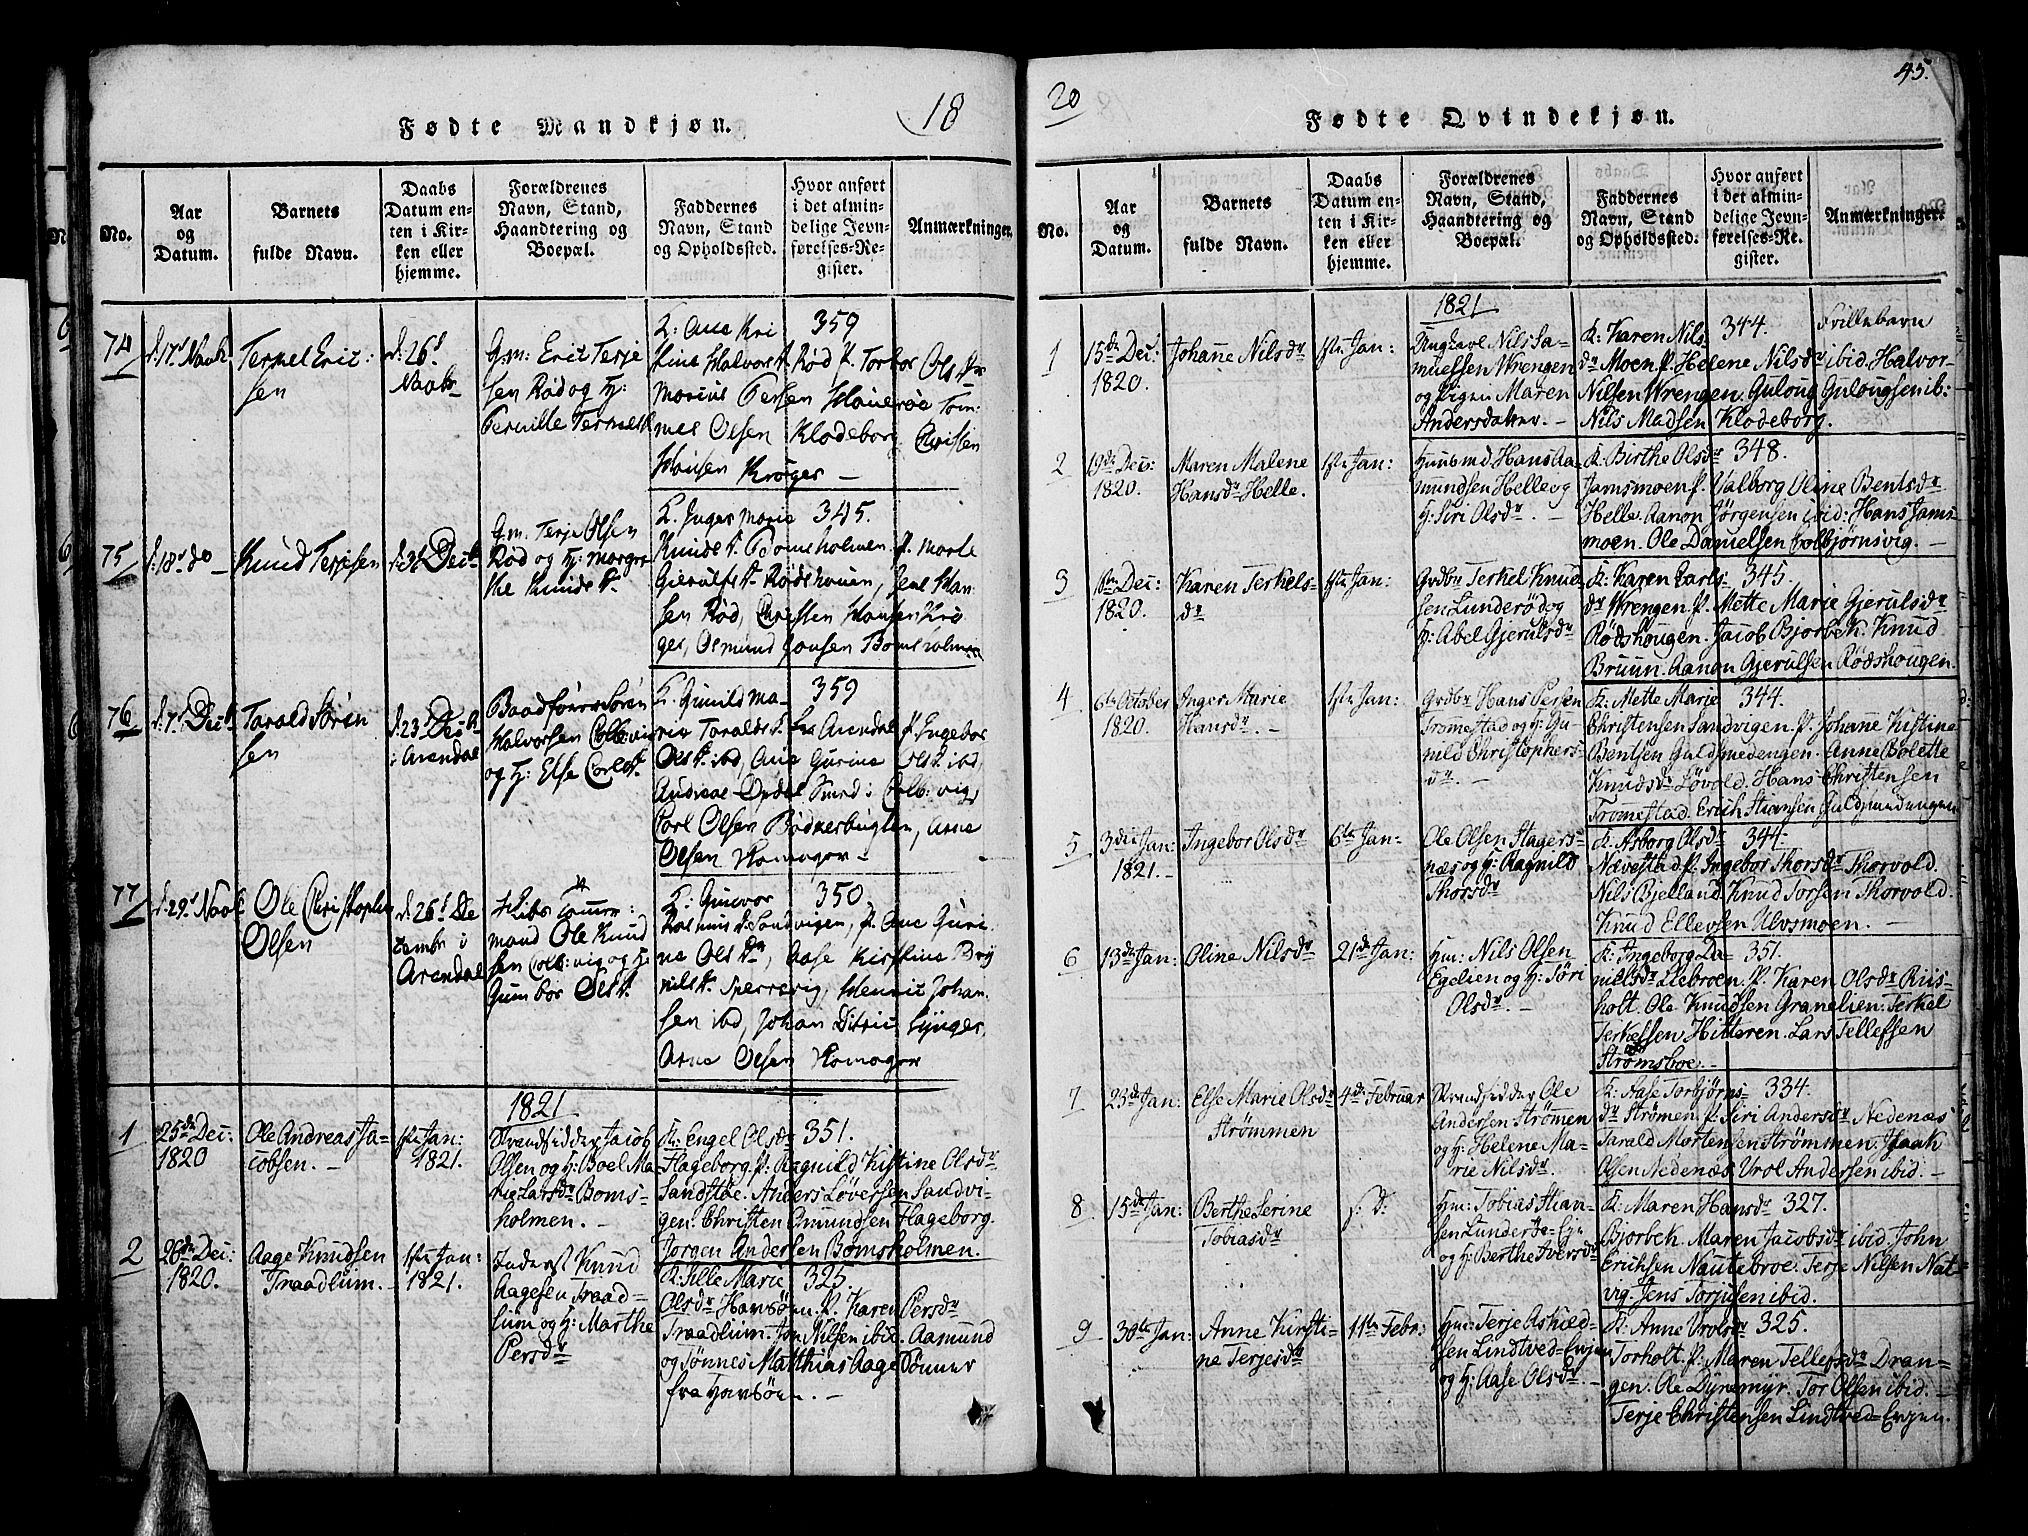 18
Fødte Mandkjøn.
No.
Aar
og
Datum.
Barnets
fulde Navn.
Daabs
Datum en-
ten i Kir-
ken eller
hjemme.
Forældrenes
Navn, Stand,
Haandtering og
Boepæl.
Faddernes
Navn, Stand
og Opholdssted.
Hvor anført
i det almin-
delige Jevn-
førelses-Re-
gister.
Anmærkninger.
74
d: 17d Novbr
Terkel Eric-
sen
d: 26d
Novbr
Gm: Eric Terje
sen Rød og H:
Pernille Terkels
359
Rød P. Torbor Ols
Klodeborg Christen
Hansen Krøger
75
d: 18d do
Knud Terjesen
d: 31 Decb
Gm. Terje Olsen
Rød og H: Margre
the Knuds
K. Inger Marie 345.
Knuds Bomsholmen P. Marte
Gierulfs Rødshouen, Jens Han
sen Rød, Christen Hansen Krø
ger, Osmund Jonsen Bomsholmen
76
d: 7d Decb
Tarald Søren
sen
d: 23d Decb
i Arendal
Halvorsen Colb:vig
og H: Else Carls
K. Gunild Ma- 359
rie Taralds fra Arendal P. Ingebor
Ols ibd, Ane Gurine Ols ibd,
Colb:vig
Carl Olsen Bødkerbugten, Arne
Olsen
77
d: 29d Novb
Ole Christopher
Olsen
d. 26d De
cembr i
Arendal
mand Ole Knud
sen Colb:vig og H:
Gumbor Ols
K: Gunvor 350
Sandvigen, P. Ane Guri
ne Ols, Aase Kirstine
Sperrevig, Henric Johan
sen ibd, Johan
Arne Olsen
1821
1
25de Dec:
1820
Ole Andreas Ja-
cobsen. –
1ste Jan:
1821.
Strandsidder Jacob
Olsen og H: Boel Ma-
rie Larsdr Boms-
holmen. –
K: Engel Olsdr 351.
Hageborg. P: Ragnild Kistine Olsdr
Sandstøe. Anders Løversen Sandvi-
gen. Christen Omundsen Hageborg.
Jørgen Andersen Bomsholmen.
2
28de Dec:
1820.
Aage Knudsen
Traadlum.
1ste Jan:
1821.
Inderst Knud
Aagesen Traad-
lum og H: Marthe
Persdr
K: Sille Marie 325.
Olsdr Havsøen. P. Karen Persdr
Traadlum. Jon Nilsen ibid. Aamund
og Tønnes Matthias Aage Sønner
fra Havsøen. –
20
45.
Fødte Qvindekjøn.
No.
Aar
og
Datum.
Barnets
fulde Navn.
Daabs
Datum en-
ten i Kir-
ken eller
hjemme.
Forældrenes
Navn, Stand,
Haandtering og
Boepæl.
Faddernes
Navn, Stand
og Opholdssted.
Hvor anført
i det almin-
delige Jevn-
førelses-Re-
gister.
Anmærkninger.
1821
1
15de Dec:
1820.
Johanne Nilsdr
1ste Jan:
Ungkarl Nils Sa-
muelsen Wrengen
og Pigen Maren
Andersdatter. –
K: Karen Nils- 344. Tvillebarn
dr Moen. P. Helene Nilsdr ibid. Halvor
Nilsen Wrengen. Guloug Gulougsen ib:
Nils Madsen Klodeborg.
2
19de Dec:
1820.
Maren Malene
Hansdr Helle.
1ste Jan:
Huusmd Hans Aa-
mundsen Helle og
H: Siri Olsdr. –
K: Birthe Olsdr 348.
Jamsmoen. P. Valborg Oline Bentsdr
Helle. Aanon Jørgensen ibid: Hans Jams-
moen. Ole Danielsen Colbjørnsvig. –
3
1820.
Karen Terkels-
dr
1ste Jan:
Grdbr Terkel Knud
sen Lunderød og
H: Abel Gjerulsdr
K: Karen Carls- 345.
dr Wrengen. P. Mette Marie Gjerulsdr
Rødshougen. Jacob Bjorbek. Knud
Bruun. Aanon Gjerulsen Rødshougen.
4
6te October
1820.
Inger Marie
Hansdr. –
1ste Jan:
Grdbr Hans Persen
Tromestad og H: Gu-
nild Christophers-
dr. –
K: Mette Marie 344.
Christensen Sandvigen. P. Johanne Kistine
Bentsen Guldsmedengen. Anne Bolette
Knudsdr Løvold. Hans Christensen
Tromestad. Erich Stiansen Guldsmedengen
5
3die Jan:
1821. –
Ingebor Olsdr
6te Jan:
Ole Olsen Stagers-
næs og H: Aagnild
Thorsdr
K: Asborg Olsdr 344
Nævestad. P. Ingebor Thorsdr Thorvold.
Nils Bjelland. Knud Torsen Thorvold.
Knud Ellevsen Ulvsmoen. –
6
13de Jan:
Oline Nilsdr
21de Jan:
Hm: Nils Olsen
Egelien og H: Siri
Olsdr. –
K: Ingeborg Da- 351.
nielsdr Lilebroen. P. Karen Olsdr Riis-
holt. Ole Knudsen Granelien. Terkel
Terkelsen Hitteren. Lars Tellefsen
Strømsboe. –
7
23de Jan:
Else Marie Olsdr
Strømmen
4de Februar
Strandsidder Ole
Andersen Strømen
og H: Helene Ma-
rie Nilsdr
K: Aase Torbjørns- 334.
dr Strømen. P. Siri Andersdr Nedenæs
Tarald Mortensen Strømmen. Isaak
Olsen Nedenæs. Urol Andersen ibid. –
8
15de Jan:
Berthe Serine
Tobiasdr
s. d:
Hm: Tobias Stian-
sen Lunderøe-Eye
og H: Berthe Iversdr
K: Maren Hansdr 327.
Bjorbek. Maren Jacobsdr ibid. John
Erichsen Nautebroe. Terje Nilsen Nat-
vig. Jens Torjusen ibid.
9
30te Jan:
Anne Kirsti-
ne Terjesdr
11te Febr:
Hm: Terje Aslaed-
sen Lindtved-Engen
og H: Aase Olsdr
K: Anne Urolsdr 325.
Torholt. P: Maren Tellefsdr Dran-
gen. Ole Dyremyr. Tor Olsen ibid. –
Terje Christensen Lindtved-Engen.